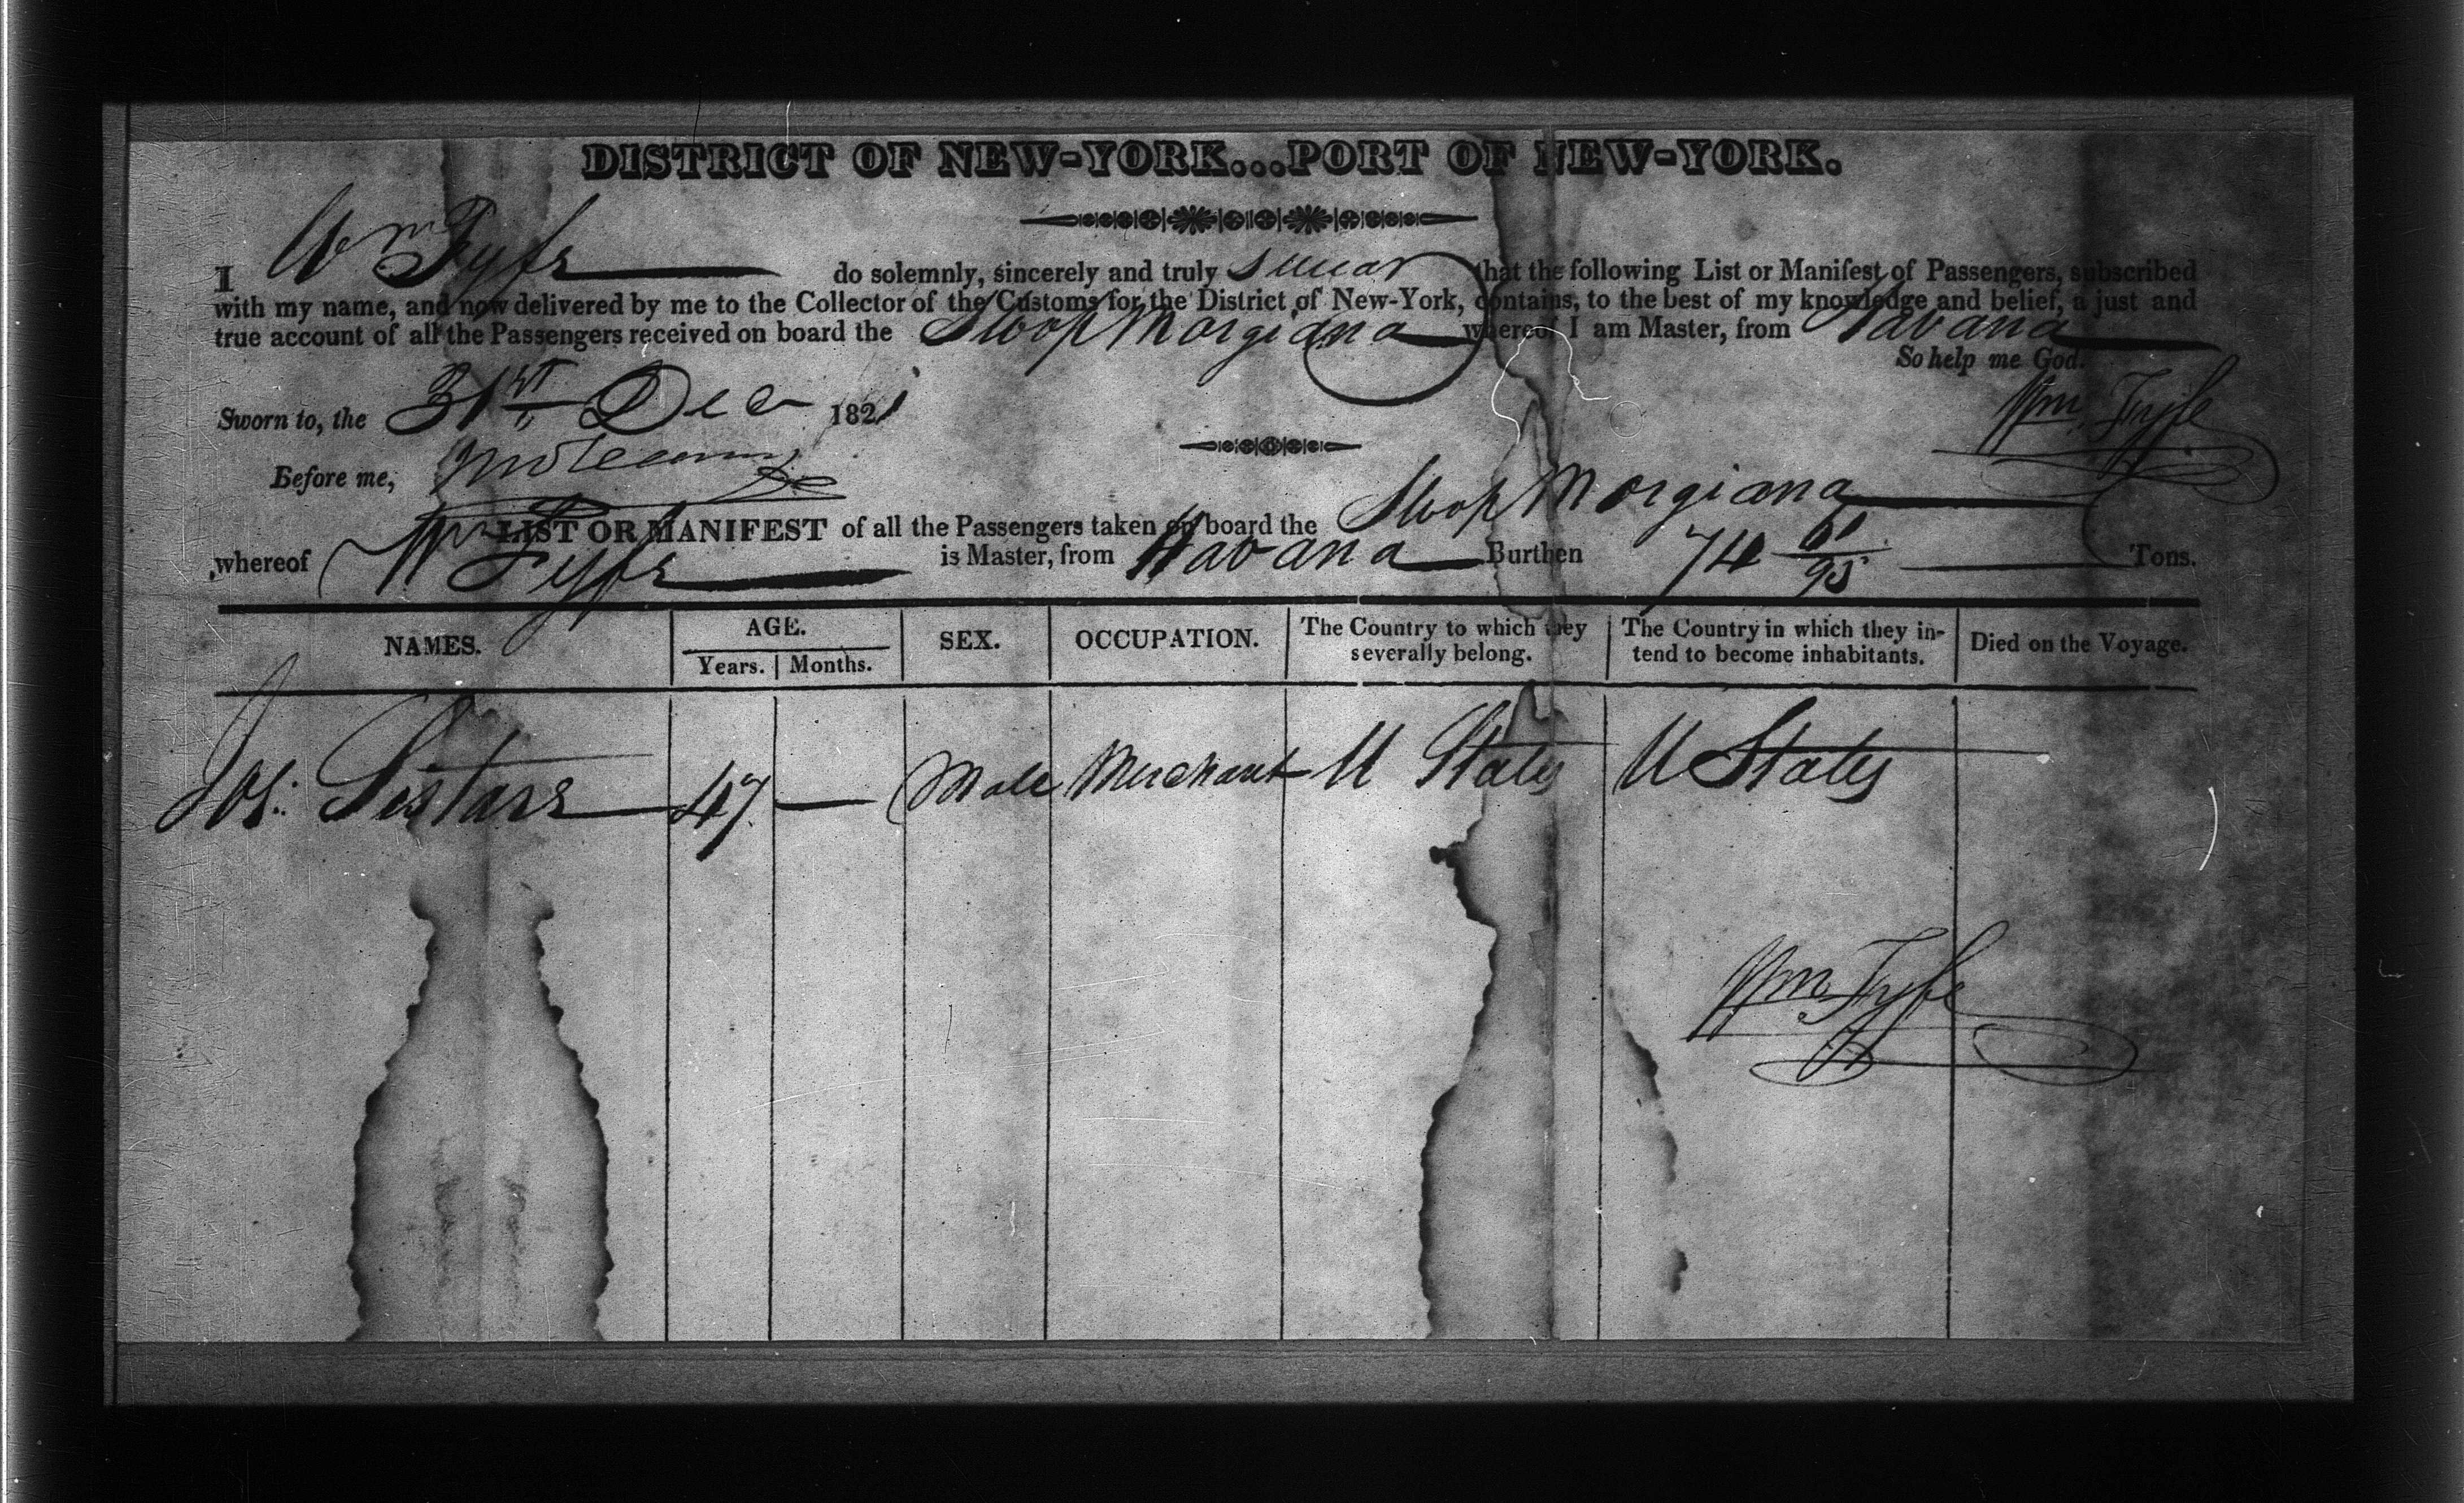 DISTRICT OF NEW-YORK...PORT OF NEW-YORK.
I Wm Fyfe do solemnly, sincerely and truly swear that the following List or Manifest of Passengers, subscribed
with my name, and now delivered by me to the Collector of the Customs for the District of New-York, contains, to the best of my knowledge and belief, a just and
true account of all the Passengers received on board the Sloop Morgiana whereof I am Master, from Havana
So help me God.
Sworn to, the 31st Dec 1821
Wm Fyfe
Before me,
LIST OR MANIFEST of all the Passengers taken on board the Sloop Morgiana
whereof Wm Fyfe is Master, from Havana Burthen 74 61/95 Tons.
NAMES. AGE. SEX. OCCUPATION. The Country to which they severally belong. The Country in which they intend to become inhabitants. Died on the Voyage.
Years. Months.
Jos: Sistare 47 — Male Merchant U States U States
Wm Fyfe